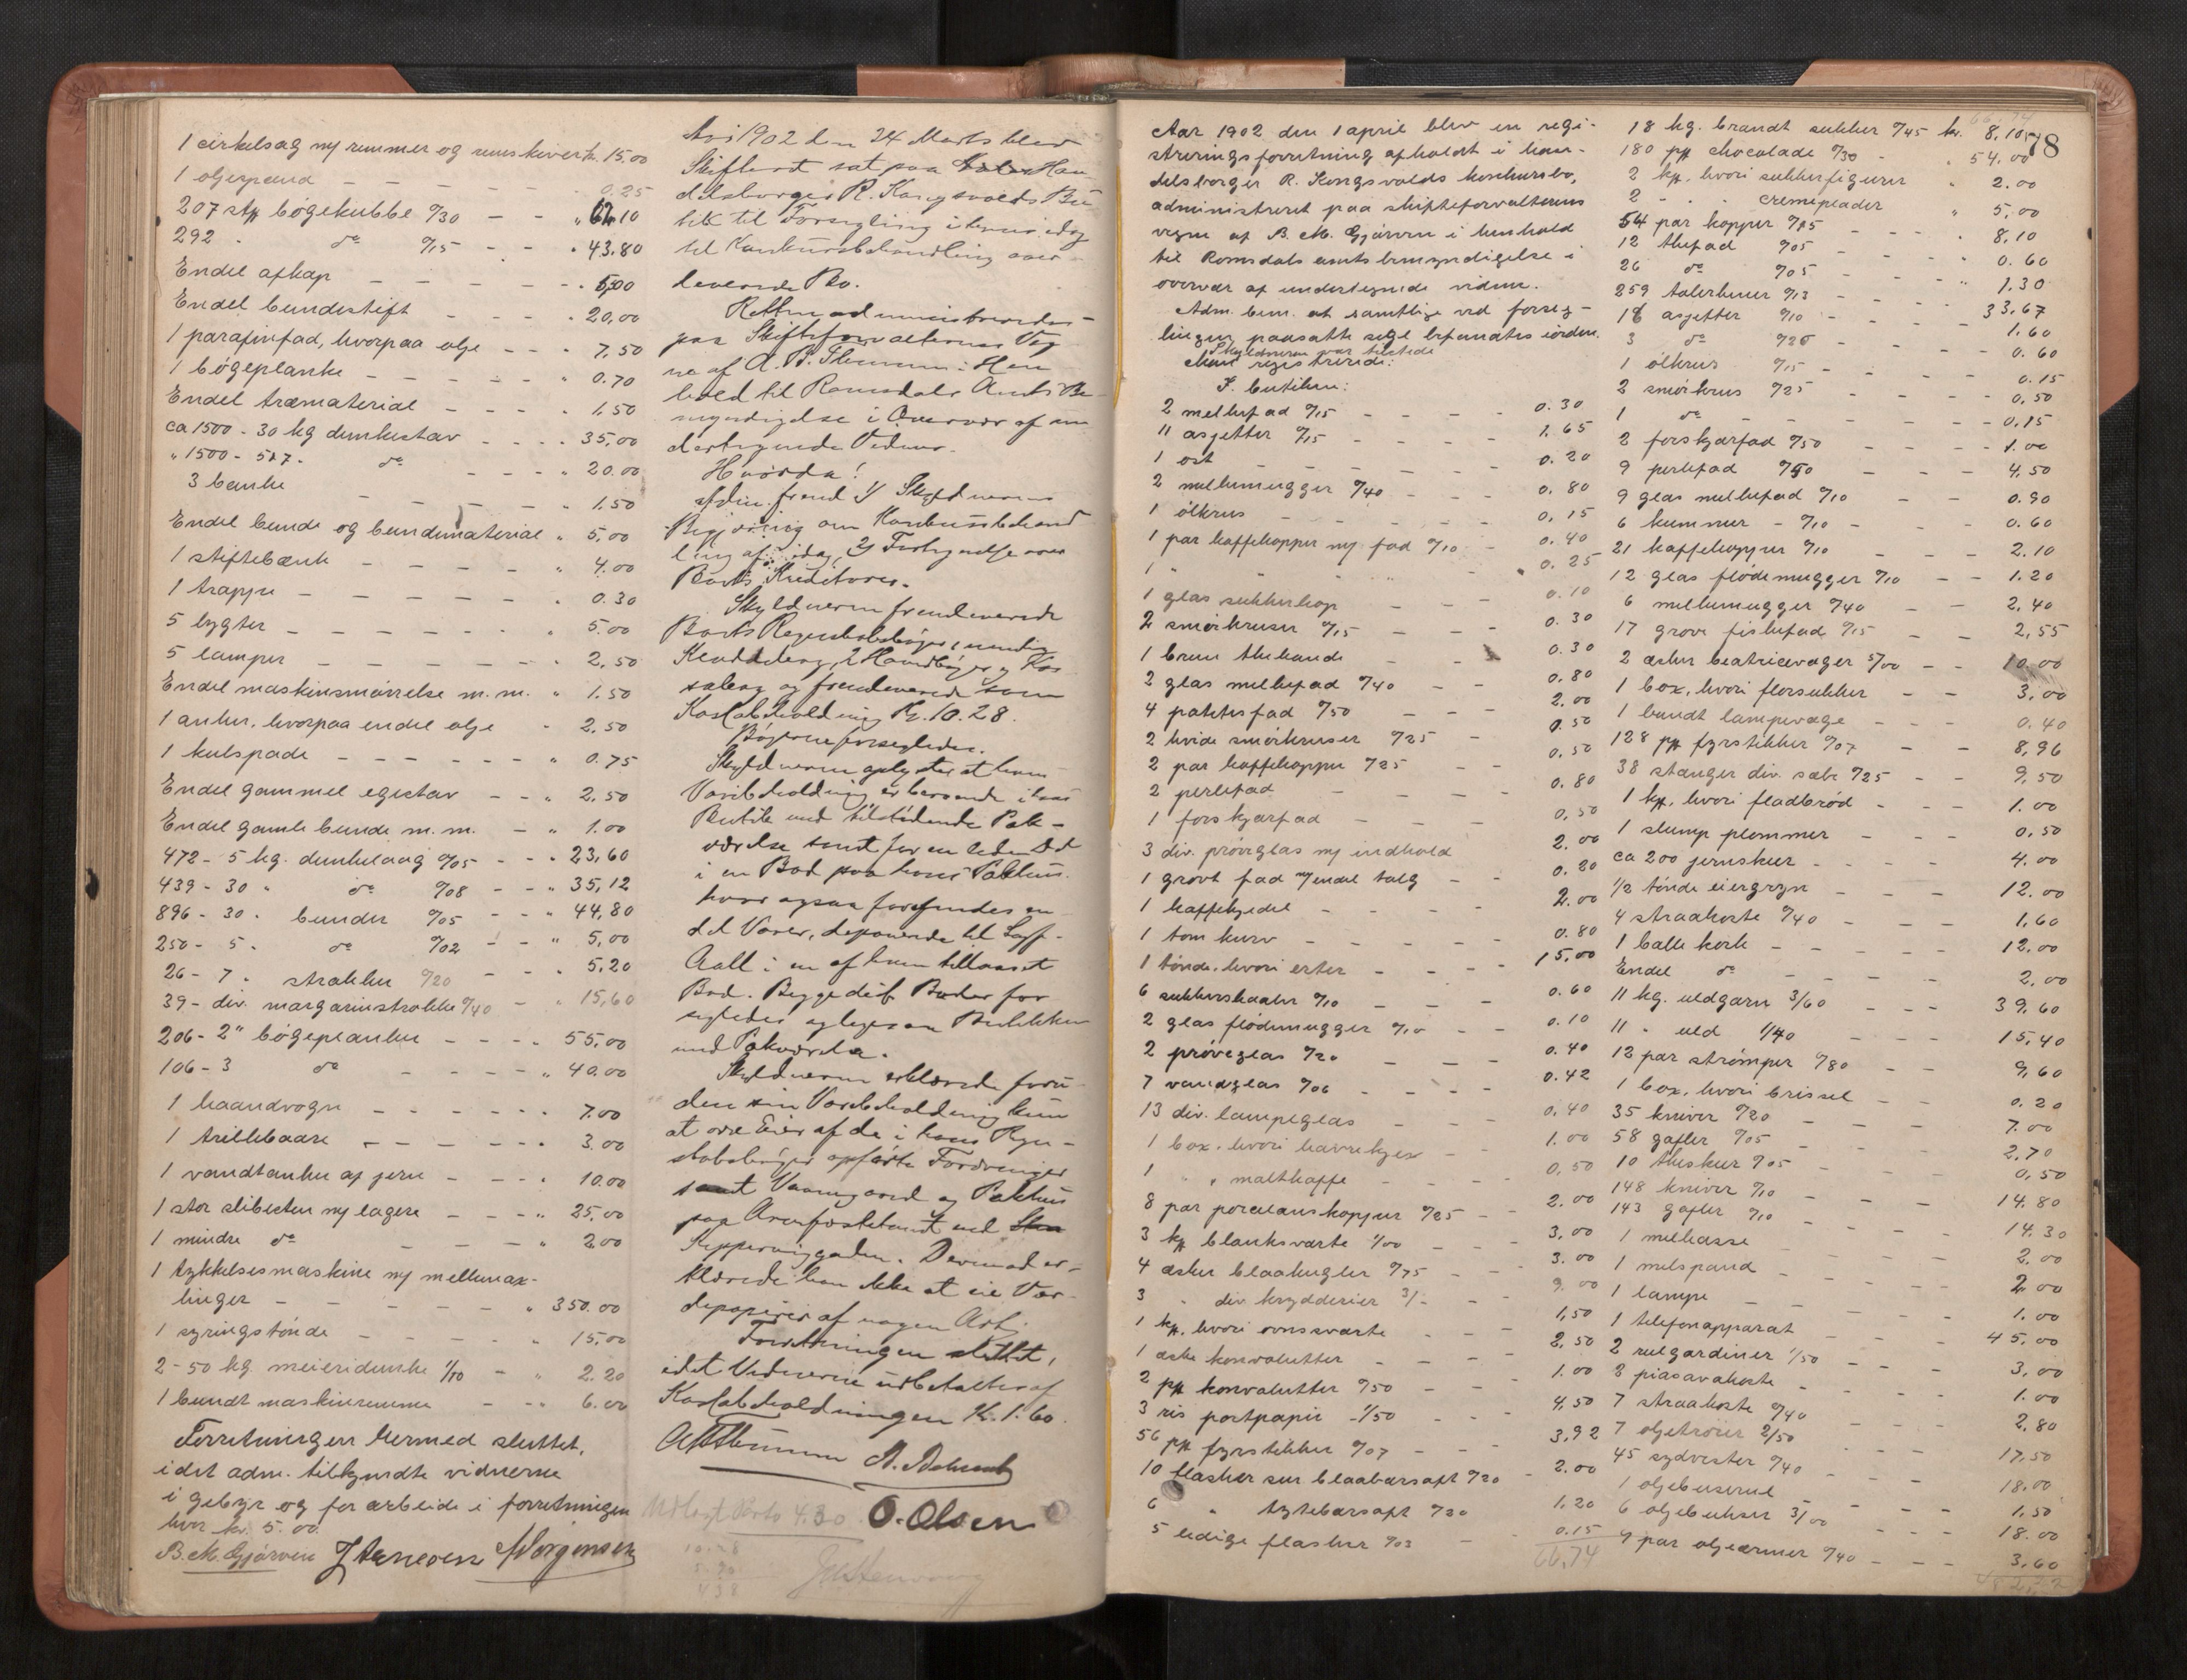 1 cirkelsag m/ remmer og remskiver kr. 15,00
1 oljespand - - - - 0.25
207 stk bøgekubbe º/30 - - " 62,10
292 " dº º/15 - - " 43.80
Endel afkap - - - - - 5,00
Endel bundestift - - - 20,00
1 parafinfad, hvorpaa olje - - 7,50
1 bøgeplanke - - - - - " 0.70
Endel træmaterial - - - " 1,50
ca 1500 - 30 kg dunkestav - - - 35,00
" 1500 - 5 & 7 - dº - - - " 20.00
3 bænke - - - - 1.50
Endel bunde og bundematerial " 5,00
1 stiftebænk - - - - - " 4.00
1 trappe - - - - - - " 0.30
5 lygter - - - - - - - " 5.00
5 lamper - - - - - - " 2,50
Endel maskinsmørrelse m.m. " 1.50
1 anker, hvorpaa endel olje " 2,50
1 kulspade - - - - - - " 0.75
Endel gammel egestav - - " 2,50
Endel gamle bunde m.m. - " 1.00
472 - 5 kg. dunkelaag º/05 - - " 23,60
439 - 30 " dº º/08 - - " 35,12
896 - 30 " bunder º/05 - - " 44,80
250 - 5 " dº º/02 - - " 5,00
26 - 7 " strakker º/20 - - " 5,20
39 - div. margarinstrakke º/40 - " 15,60
206 - 2" bøgeplanker - - - - 55,00
106 - 3 dº - - - - " 40.00
1 haandvogn - - - - - - 7.00
1 trillebaare - - - - - - 3.00
1 vandtanker af jern - - - " 10.00
1 stor slibesten m/ lagere - - - " 25,00
1 mindre dº - - - " 2.00
1 tykkelsesmaskine m/ mellemax-
linger - - - - - - " 350.00
1 syringstønde - - - - - " 15,00
2 - 50 kg meieridunke 1/10 - " 2.20
1 bundt maskinremme - - " 6.00
Forretningen hermed sluttet,
idet adm. tilkjendte vidnerne
i gebyr og for arbeide i forretningen
hver kr. 5.00.
B. M. Gjørven J Stenersen Jørgensen
Aar 1902 den 24 Marts blev
Skifteret sat paa Han
delsborger R. Kongsvolds Bu
tik til Forsegling i hans idag
til Konkursbehandling over
leverede Bo.
Retten administreredes
paa Skifteforvalterens Veg
ne af A. B. Thesen i Hen
hold til Romsdals Amts Be
myndigelse i Overvær af un
dertegnede Vidner.
Hvorda!
Adm. frem 1) Skyldnerens
Begjæring om Konkursbehand
ling af idag, 2) Fortegnelse over
Boets Kreditorer.
Skyldneren fremleverede
Boets Regnskabsbøger, nemlig
Kladdebog, 2 Hovedbøger og Kas
sabog og fremleverede som
Kassabeholdning Kr. 10.28.
Bøgerne forsegledes.
Skyldneren oplyste at hans
Varebeholdning er beroende i hans
Butik med tilstødende Pak-
værelse samt for en liden Del
i en Bod paa hans Pakhus
hvor ogsaa forefindes en
del Varer, deponerede til
Aall i en af ham tillaaset
Bod. Begge disse Boder for
segledes og ligesaa Butikken
med Pakværelse.
Skyldneren erklærede foru-
den sin Varebeholdning kun
at være Eier af de i hans Regn-
skabsbøger opførte Fordringer
samt Vaaningsgaard og Pakhus
paa Arvefæstetomt ved
Kippervigsgaden. Derimod er-
klærede han ikke at eie Vær-
depapirer af nogen Art.
Forretningen sluttet,
idet Vidnerne udbetaltes af
Kassabeholdningen Kr. 1.60.
O. Olsen
Udlagt Porto 4.30
10.28
5.90
4.38
78
Aar 1902 den 1 april blev en regi-
streringsforretning afholdt i han-
delsborger R. Kongsvolds konkursbo,
administreret paa skifteforvalterens
vegne af B. M. Gjørven i henhold
til Romsdals amts bemyndigelse i
overvær af undertegnede vidner.
Adm. bem. at samtlige ved forseg-
lingen paasatte segl befandtes iorden.
Skyldneren var tilstede
Man registrerede:
I. butiken:
2 mellefad º/15 - - - - 0.30
11 asjetter º/15 - - - - 1.65
1 ost - - - - - 0.20
2 mellemugger º/40 - - - 0.80
1 ølkrus - - - - - 0.15
1 par kaffekopper m/ fad º/10 - 0.40
1 " " " " " 0.25
1 glas sukkerkop - - - 0.10
2 smørkruser º/15 - - - 0.30
1 brun thekande - - 0.30
2 glas mellefad º/40 - - 0.80
4 potetesfad º/50 - - - 2.00
2 hvide smørkruser º/25 - 0.50
2 par kaffekopper º/25 - - 0.50
2 perlefad - - - - 0.80
1 forskjærfad - - - - 0,50
3 div. prøveglas m/ indhold 2.00
1 grovt fad m/ endel talg - - 0.20
1 kaffekjedel - - - - - 2.00
1 tom kurv - - - - - 0.80
1 tønde, hvori erter - - - - 15,00
6 sukkerskaaler º/10 - - - - 0.60
2 glas flødemugger º/10 - - 0.10
2 prøveglas º/20 - - - - 0.40
7 vandglas º/06 - - - - 0.42
13 div. lampeglas - - - 0.40
1 box, hvori havrekjex - - 1.00
1 " " maltkaffe - - - 0,50
8 par porcelænskopper º/25 - - 2.00
3 kp blanksværte 1/00 - - - 3,00
4 æsker blaakugler º/75 - - 3.00
3 " div. krydderier 3/- - - 9.00
1 kp. hvori ovnsværte - - - 1,50
1 æske konvolutter - - - - 2,50
2 pk konvolutter º/50 - - - 1.00
3 ris postpapir 1/50 - - - 4,50
56 pk fyrstikker º/07 - - - 3.92
10 flasker sur blaabærsaft º/20 - 2.00
6 " tytebærsaft º/20 1.20
5 ledige flasker º/03 - 0.15
66,74
66,74
18 kg. brændt sukker º/45 kr. 8,10
180 pk chocolade º/30 - " 54.00
2 kp. hvori sukkerfigurer " 2.00
2 " " cremeplader " 5,00
54 par kopper º/15 - - - " 8,10
12 thefad º/05 - - - - 0.60
26 dº º/05 - - - " 1.30
259 talerkener º/13 - - - - 33,67
16 asjetter º/10 - - - - 1.60
3 dº º/20 - - - - 0.60
1 ølkrus º/15 - - - - 0.15
2 smørkrus º/25 - - - - 0,50
1 dº - - - - - 0,15
2 forskjærfad º/50 - - - - 1.00
9 perlefad º/50 - - - 4,50
9 glas mellefad º/10 - - 0.90
6 kummer - º/10 - - - 0.60
21 kaffekopper º/10 - - - 2.10
12 glas flødemugger º/10 - - 1.20
6 mellemugger º/40 - - 2,40
17 grove fiskefad º/15 - - 2,55
2 æsker beatricevæger 5/00 - - 10.00
1 box, hvori florsukker - - 3,00
1 bundt lampevæge - - - 0.40
128 pk fyrstikker º/07 - - 8,96
38 stænger div. sæbe º/25 - - 9,50
1 kp. hvori fladbrød - - - 1.00
1 slump plommer - - - 0,50
ca 200 jernskeer - - - - 4.00
1/2 tønde eiergryn - - - 12.00
4 straakoste º/40 - - - 1,60
1 balle kork - - - - 12.00
Endel dº - - - - 2,00
11 kg. uldgarn 3/60 - - - 39,60
11 " uld 1/40 - - - 15,40
12 par strømper º/80 - - - 9,60
1 box, hvori brissel - - - 0.20
35 kniver º/20 - - - - 7.00
58 gafler º/05 - - - - 2,70
10 theskeer º/05 - - - - 0,50
148 kniver º/10 - - - 14.80
143 gafler º/10 - - - 14.30
1 melkasse - - - - 2.00
1 melspand - - - - 2.00
1 lampe - - - - 1.00
1 telefonapparat - - - 45.00
2 rulgardiner 1/50 - - - 3,00
2 piasavakoste - - - - 1.00
7 straakoste º/40 - - - 2,80
7 oljetrøier 2/50 - - - 17,50
45 sydvester º/40 - - - 18.00
1 oljebusserul - - - 1,50
6 oljebukser 3/00 - - - 18.00
9 par oljeærmer º/40 - - - 3,60